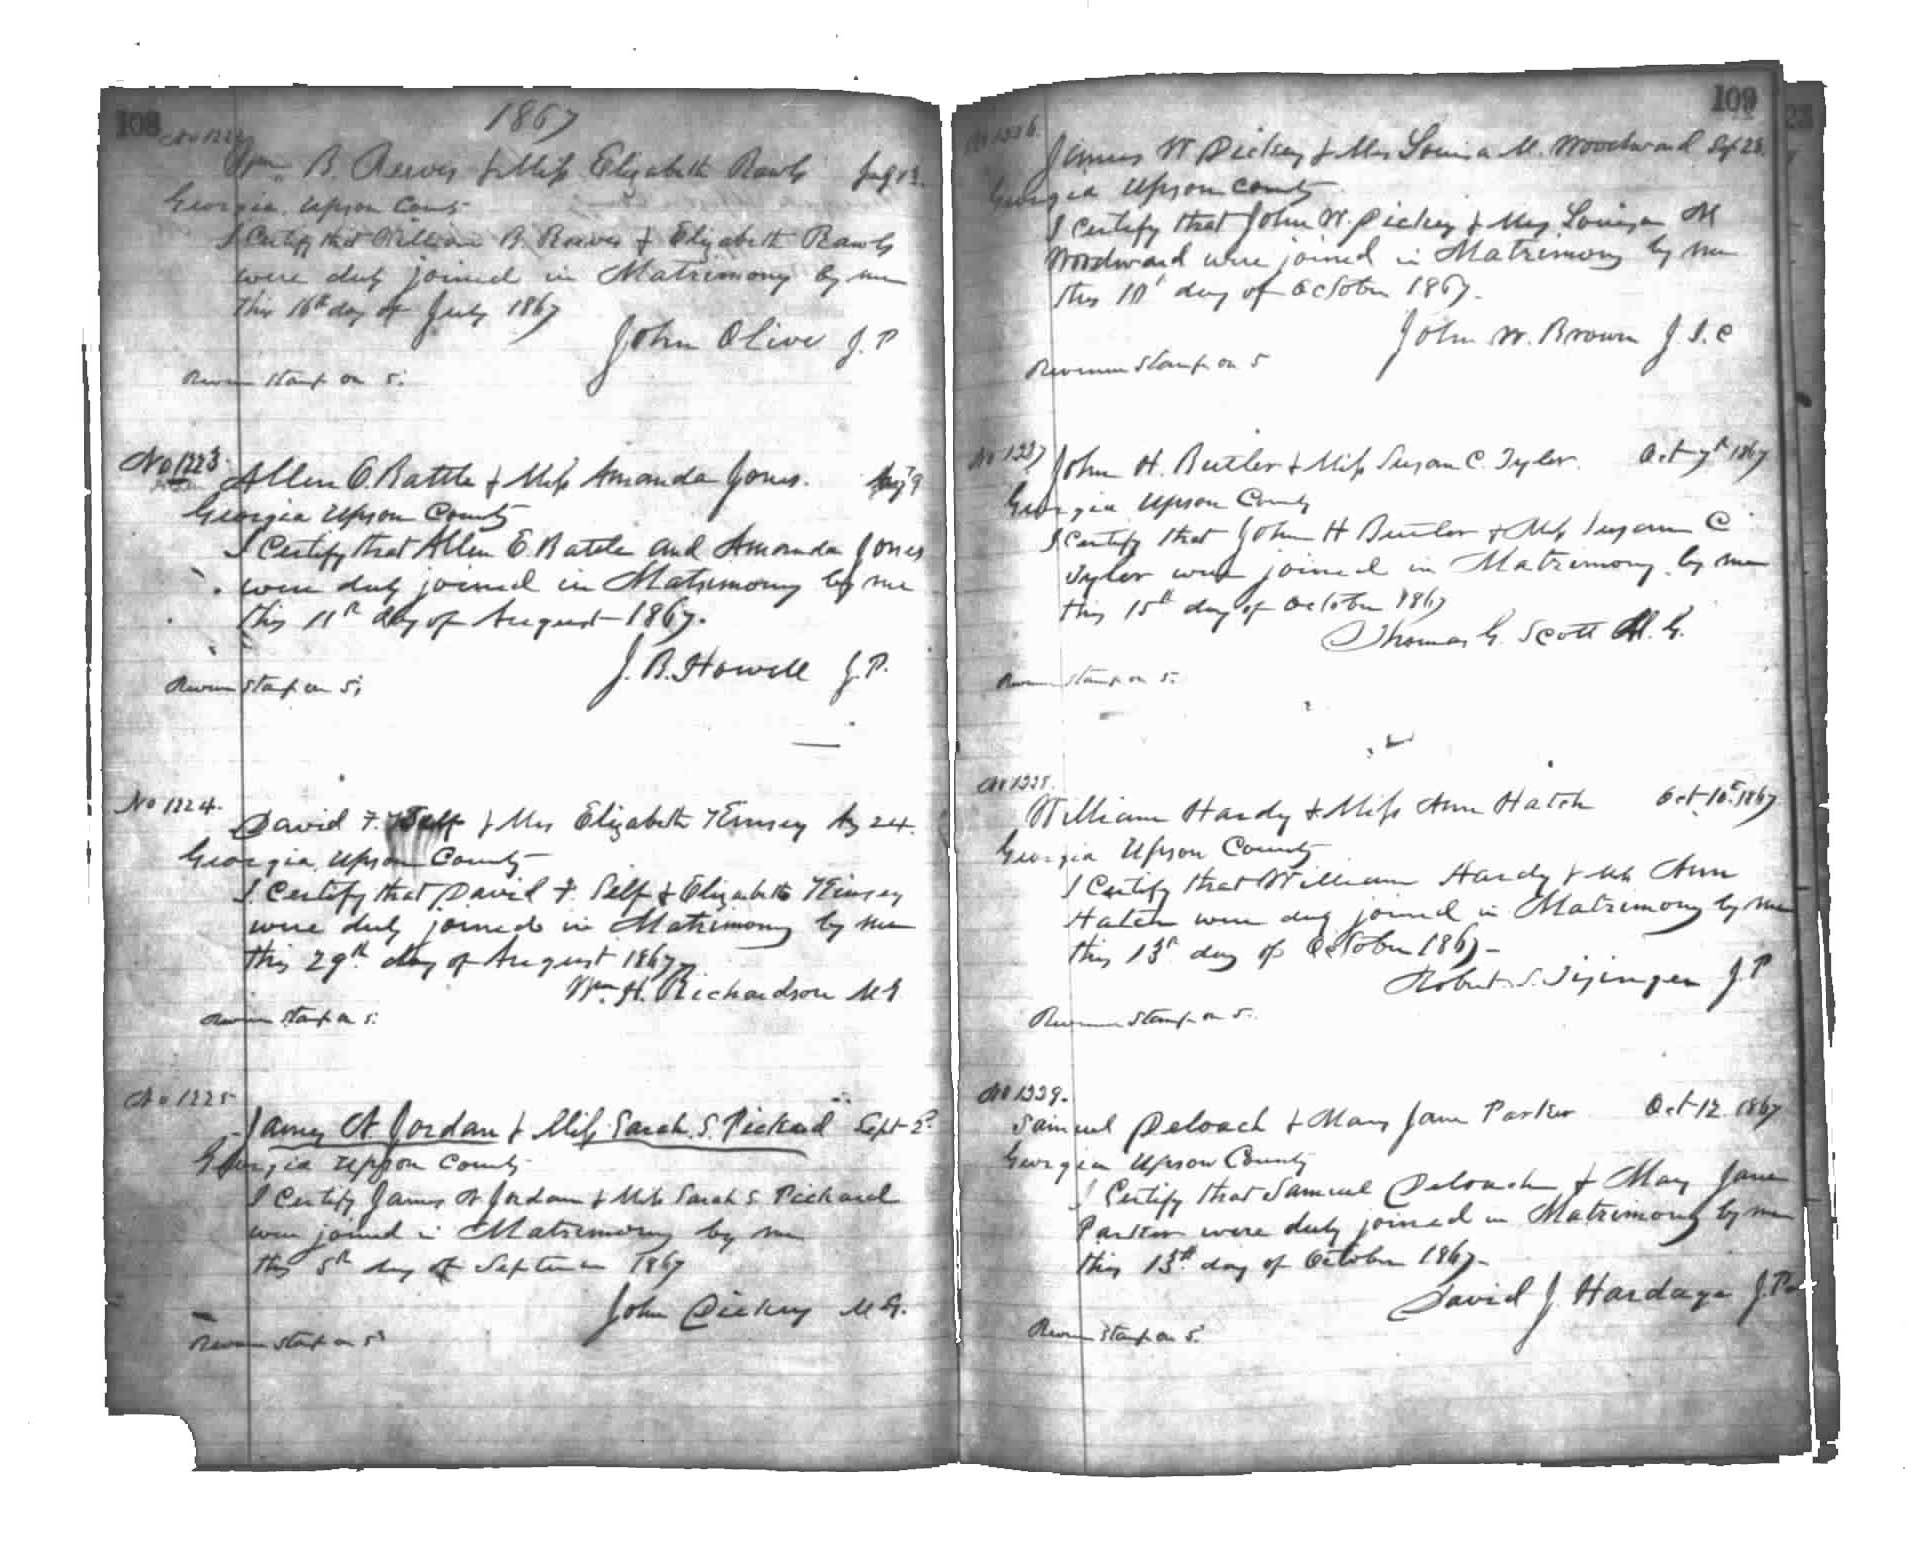 108
1867
No 1222
Wm B. Reeves & Miss Elizabeth Rawls July 13
Georgia, Upson County
I Certify that William B. Reeves & Elizabeth Rawls
were duly joined in Matrimony by me
this 16th day of July 1867
John Olive J. P
Revenue Stamp on 5.
No 1223.
Allen E Battle & Miss Amanda Jones. Aug 9
Georgia Upson County
I Certify that Allen E. Battle and Amanda Jones
were duly joined in Matrimony by me
this 11th day of August 1867.
J. B. Howell J. P.
Revenue Stamp on 5.
No 1224.
David F. Self & Mrs Elizabeth Kimsey Ag 24.
Georgia, Upson County
I Certify that David F. Self & Elizabeth Kimsey
were duly joined in Matrimony by me
this 29th day of August 1867
Wm. H. Richardson M G
Revenue Stamp on 5.
No 1225
James A Jordan & Miss Sarah. S. Pickard Sept 2d
Georgia Upson County
I Certify James A Jordan & Miss Sarah S Pickard
were joined in Matrimony by me
this 5th day of September 1867
John Dickey M. G.
Revenue Stamp on 5
109
No 1226.
James W Dickey & Mrs Louisa M. Woodward Sept 28.
Georgia Upson County
I Certify that John W. Dickey & Mrs Louisa M
Woodward were joined in Matrimony by me
this day of October 1867.
John W. Brown J. I. C
Revenue Stamp on 5
No 1227
John H. Butler & Miss Susan C. Tyler. Oct 7th 1867
Georgia Upson County
I Certify that John H Butler & Miss Susan C
Tyler were joined in Matrimony by me
this 15th day of October 1867
Thomas G. Scott M. G.
Revenue Stamp on 5.
No 1228.
William Hardy & Miss Ann Hatch Oct 10th 1867
Georgia Upson County
I Certify that William Hardy & Miss Ann
Hatch were duly joined in Matrimony by me
this 13th day of October 1867-
Robert S. J.P
Revenue Stamp on 5.
No 1229.
Samuel Deloach & Mary Jane Parker Oct 12 1867
Georgia Upson County
I Certify that Samuel Deloach & Mary Jane
Parker were duly joined in Matrimony by me
this 13th day of October 1867-
David J. Hardage J.P.
Revenue Stamp on 5.